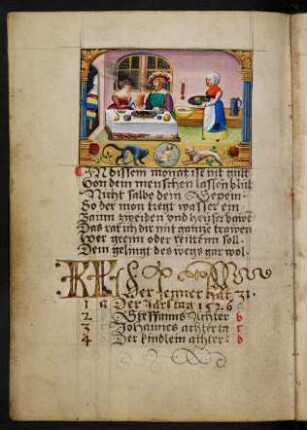 In dissem monat ist nit gutt
Von dem menschen lassen blut
Nicht salbe dem
So der mon tregt wasser ein
Zaun zweiden vnd heuser bawe
Das rat ich dir mit gantze trawen
Wer greinn oder reitenn soll
Dem gelingt des wegs gar wol
Der Jenner hat
1 a Der Jarstag 1526
2 Steffanus Achter b
3 Johannes achter
4 Der kindlein achter b